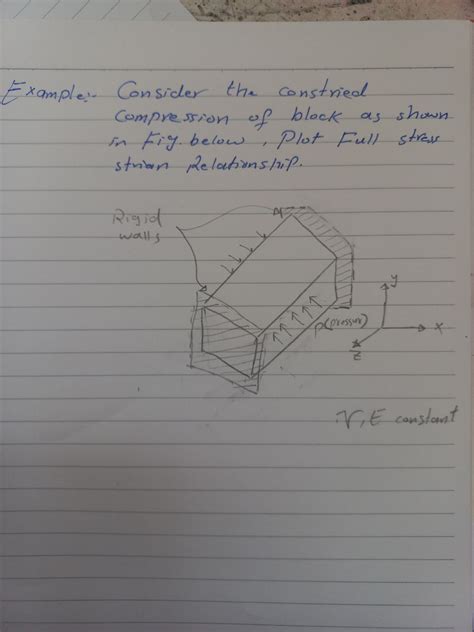 Example:- Consider the constried
compression of block as shown
in Fig. below, Plot Full stress
strian Relationship.
Rigid
walls
P(pressur)
y
x
z
ν, E constant